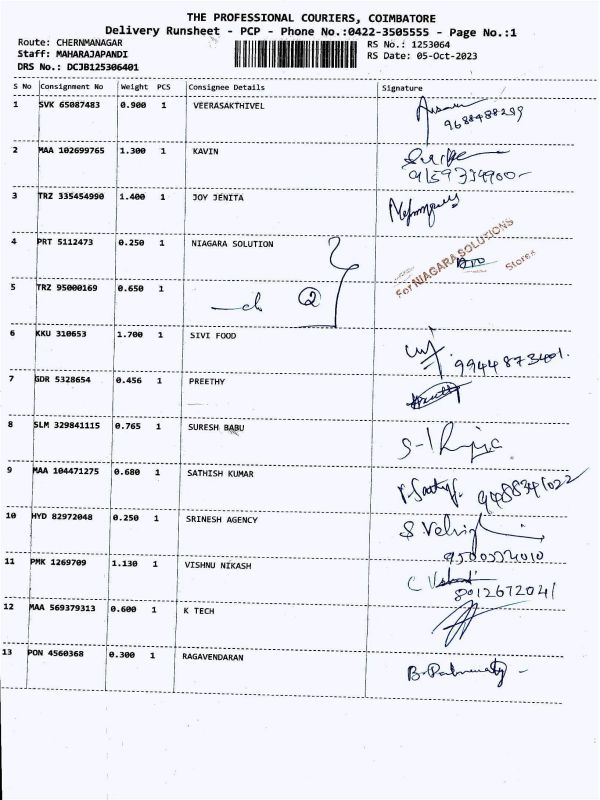 THE PROFESSIONAL COURIERS, COIMBATORE
Delivery Runsheet - PCP - Phone No.:0422-3505555 - Page No.:1
Route: CHERNMANAGAR RS No.: 1253064
Staff: MAHARAJAPANDI RS Date: 05-Oct-2023
DRS No.: DCJB125306401
S No Consignment No Weight PCS Consignee Details Signature
1 SVK 65087483 0.900 1 VEERASAKTHIVEL
9688488299
2 MAA 102699765 1.300 1 KAVIN
9159739900-
3 TRZ 335454990 1.400 1 JOY JENITA
4 PRT 5112473 0.250 1 NIAGARA SOLUTION
For NIAGARA SOLUTIONS
Stores
5 TRZ 95000169 0.650 1
2
6 KKU 310653 1.700 1 SIVI FOOD
9944873401.
7 GDR 5328654 0.456 1 PREETHY
8 SLM 329841115 0.765 1 SURESH BABU
9 MAA 104471275 0.680 1 SATHISH KUMAR
9488341022
10 HYD 82972048 0.250 1 SRINESH AGENCY
S Velu
9500334010
11 PMK 1269709 1.130 1 VISHNU NIKASH
8012672041
12 MAA 569379313 0.600 1 K TECH
13 PON 4560368 0.300 1 RAGAVENDARAN